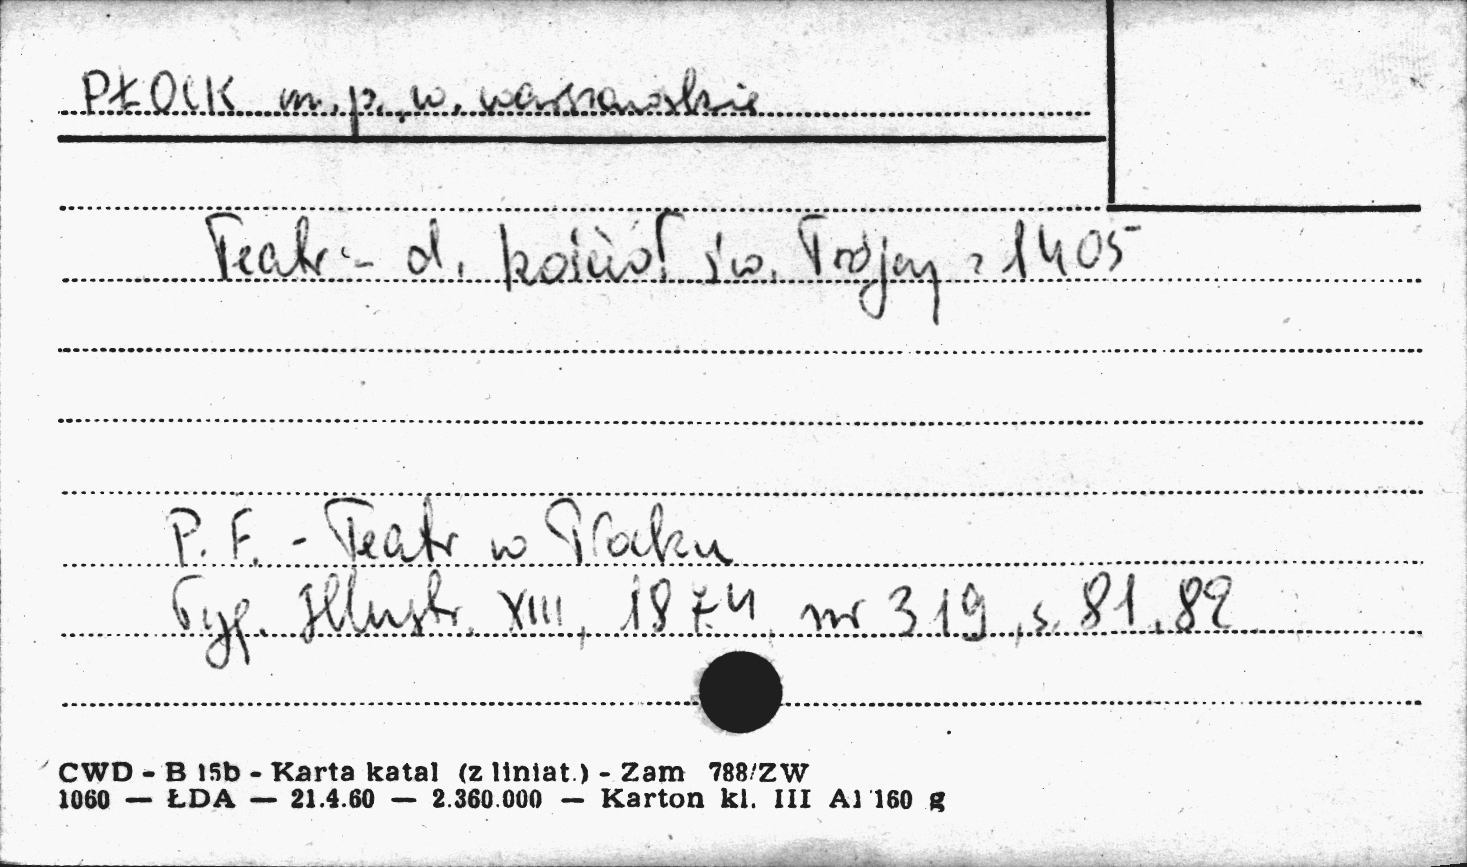 PŁOCK m. p., w. warszawskie
Teatr - d. kościół św. Trójcy z 1405
P. F. - Teatr w Płocku
Tyg. Illustr. XIII, 1874, nr 319, s. 81, 82
CWD - B 15b - Karta katal (z liniat.) - Zam 788/ZW
1060 — ŁDA — 21.4.60 — 2.360.000 — Karton kl. III A1 160 g